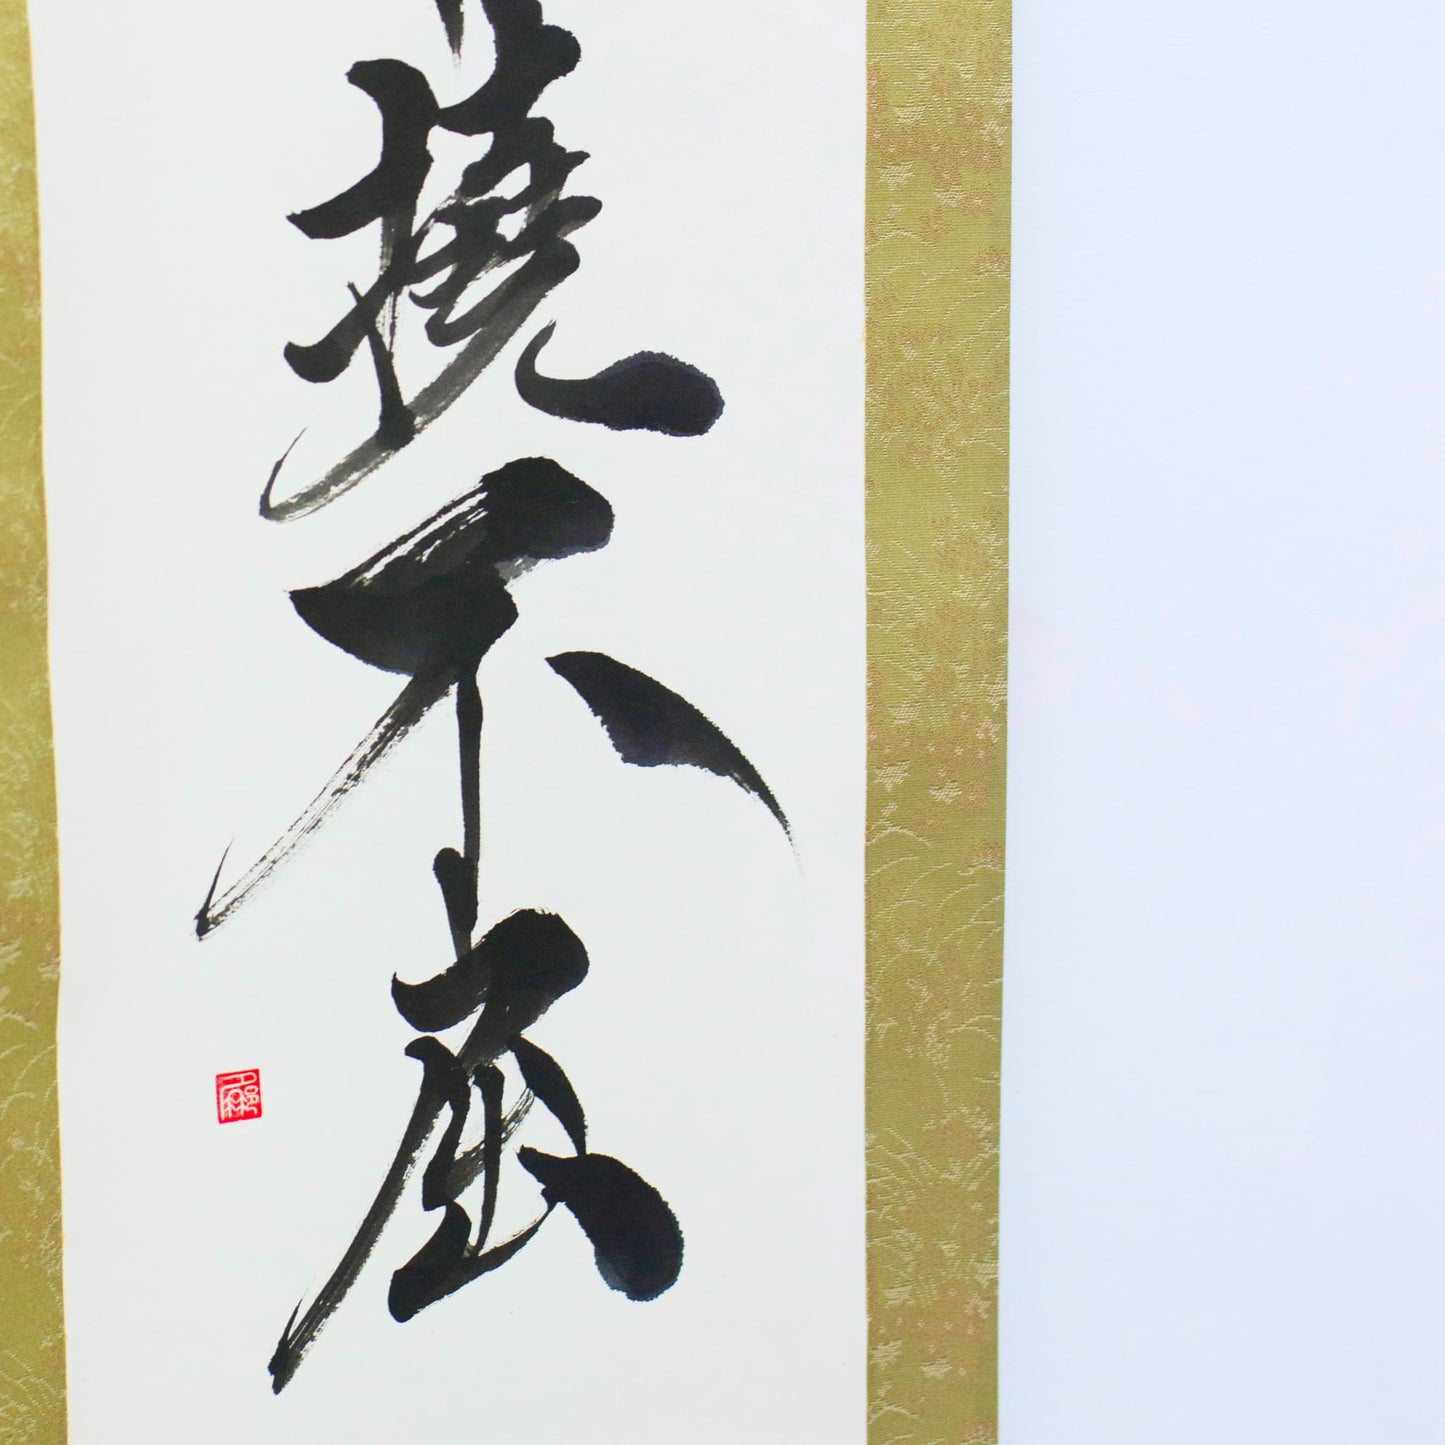 撓不屈